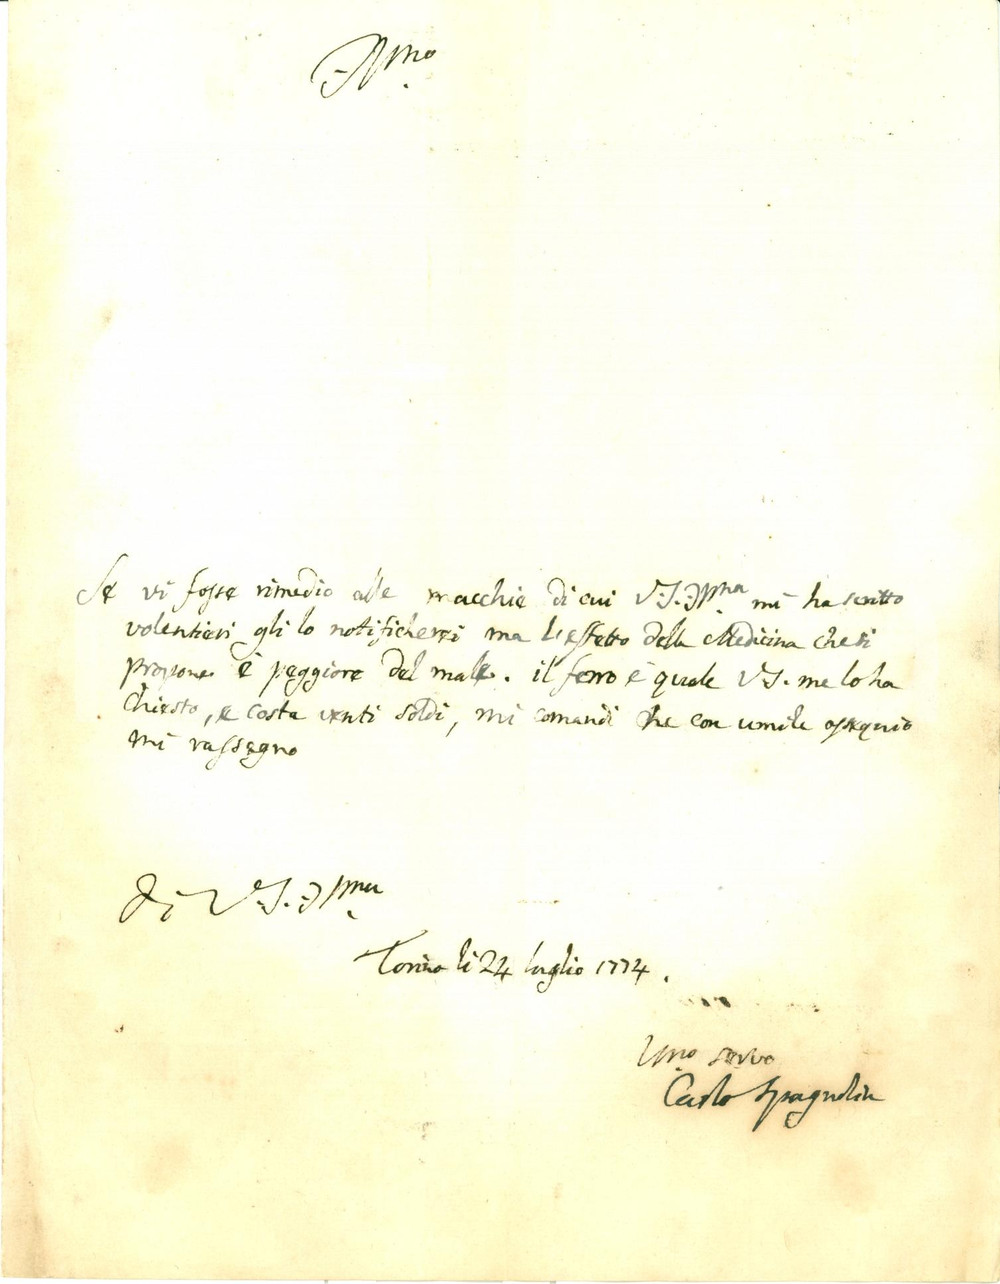 Illmo
Se vi fosse rimedio alle macchie di cui V.S. Illma mi ha scritto
volentieri gli lo notificherei ma l'effetto della Medicina che si
propone è peggiore del male. il ferro è quale V.S. me lo ha
chiesto, e costa venti soldi, mi comandi che con umile ossequio
mi rassegno
Di V.S. Illma
Torino li 24 luglio 1774.
Umo servo
Carlo